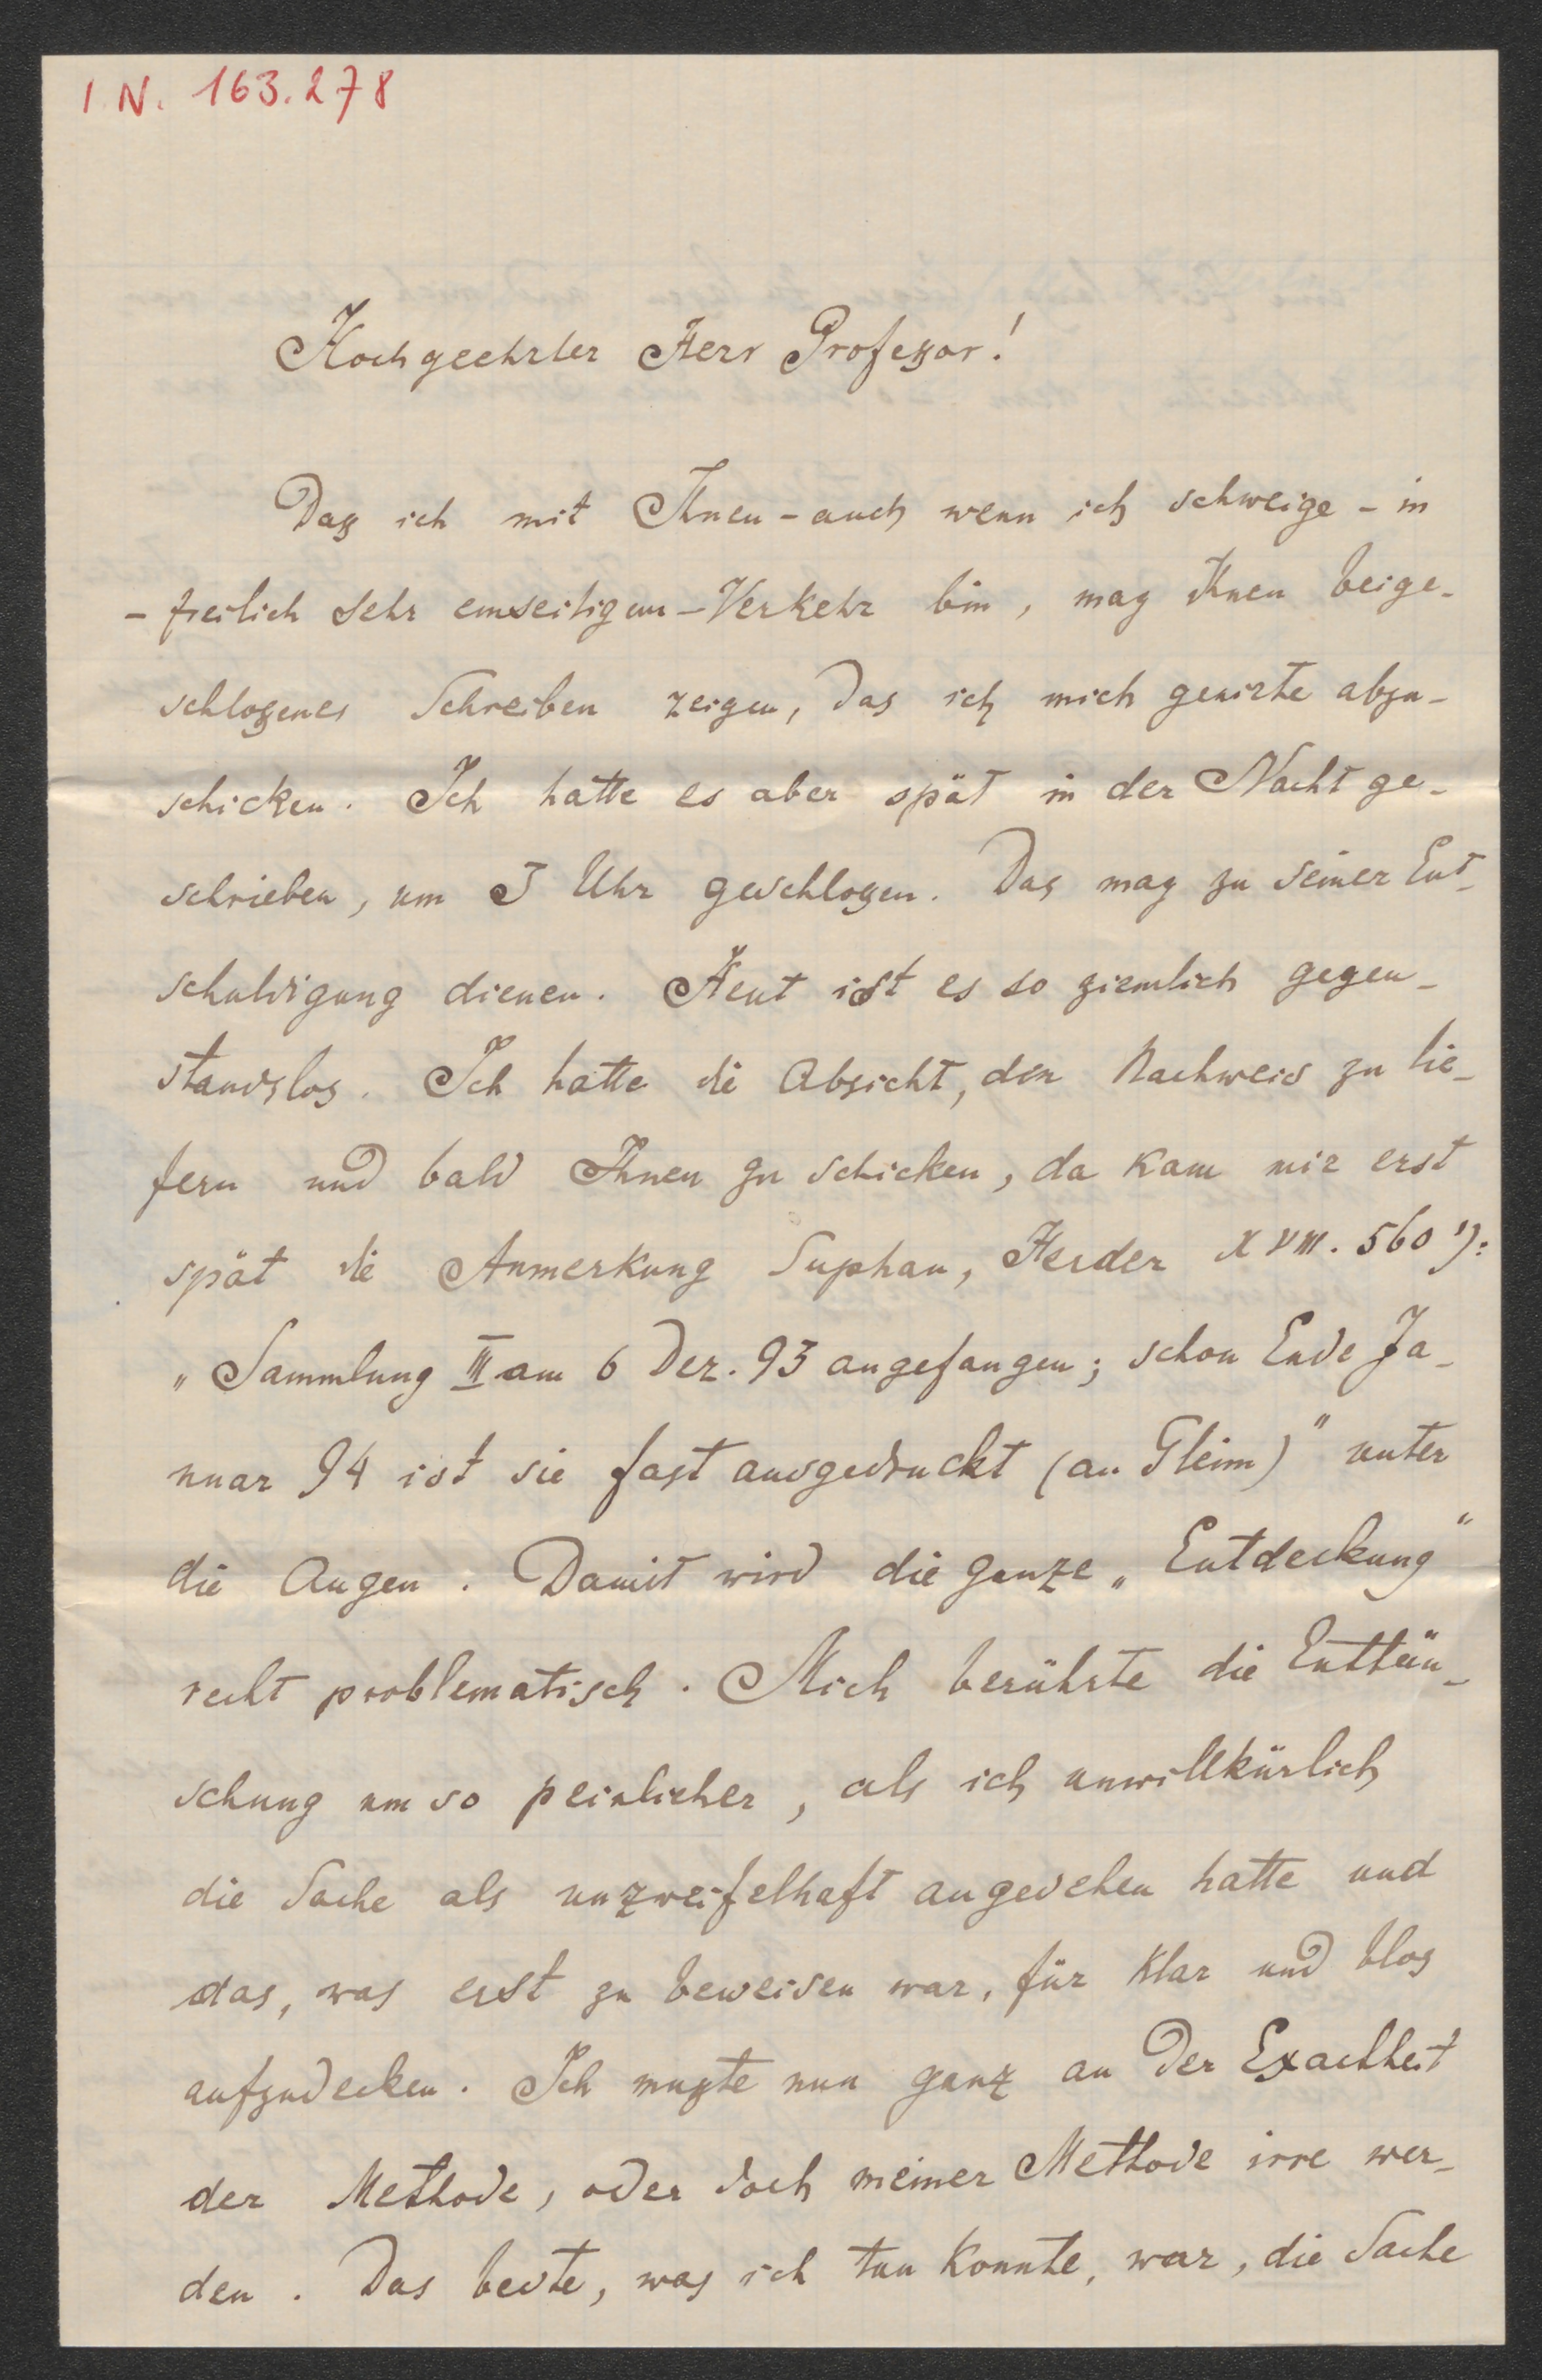 I. N. 163.278
Hochgeehrter Herr Profeßor!
Daß ich mit Ihnen - auch wenn ich schweige - in
- freilich sehr einseitigem - Verkehr bin, mag Ihnen beige-
schloßenes Schreiben zeigen, das ich mich genirte abzu-
schicken. Ich hatte es aber spät in der Nacht ge-
schrieben, um 3 Uhr geschloßen. Das mag zu seiner Ent-
schuldigung dienen. Heut ist es so ziemlich gegen-
standslos. Ich hatte die Absicht, den Nachweis zu lie-
fern und bald Ihnen zu schicken, da kam mir erst
spät die Anmerkung Suphan, Herder XVIII. 560 ¹):
„Sammlung III am 6 Dez. 93 angefangen; schon Ende Ja-
nuar 94 ist sie fast ausgedruckt (an Gleim)" unter
die Augen. Damit wird die ganze „Entdeckung"
recht problematisch. Mich berührte die Enttäu-
schung um so peinlicher, als ich unwillkürlich
die Sache als unzweifelhaft angesehen hatte und
das, was erst zu beweisen war, für klar und blos
aufzudecken. Ich mußte nun ganz an der Exactheit
der Methode, oder doch meiner Methode irre wer-
den. Das beste, was ich tun konnte, war, die Sache